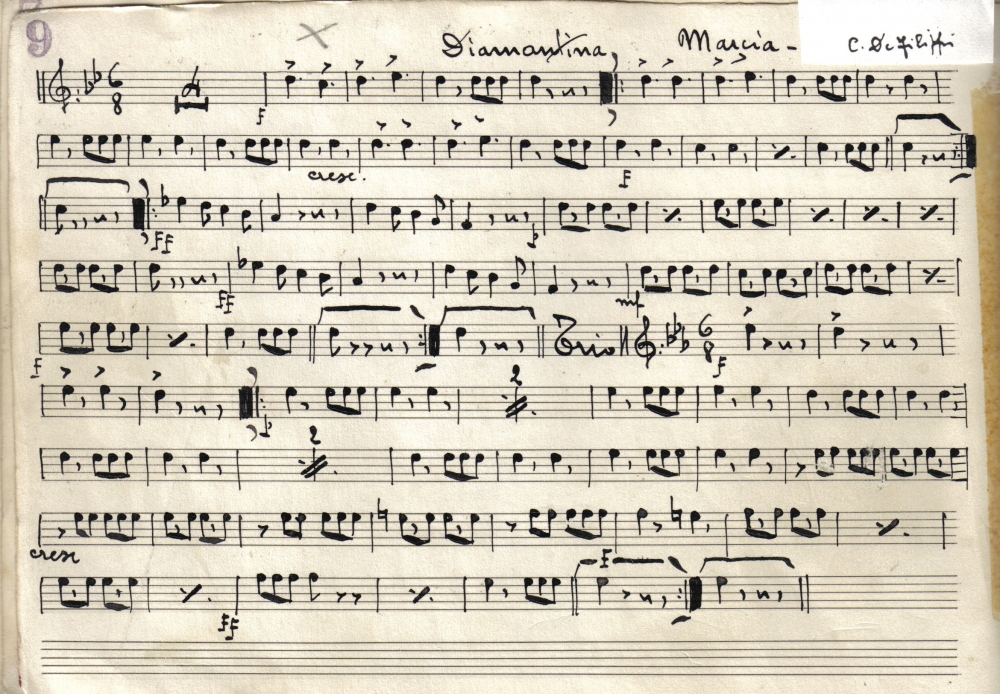 9
Diamantina Marcia - C. De Filippi
6
8
4
f
cresc.
f
ff
p
ff
mf
f
Trio
6
8
f
2
p
2
cresc
f
ff